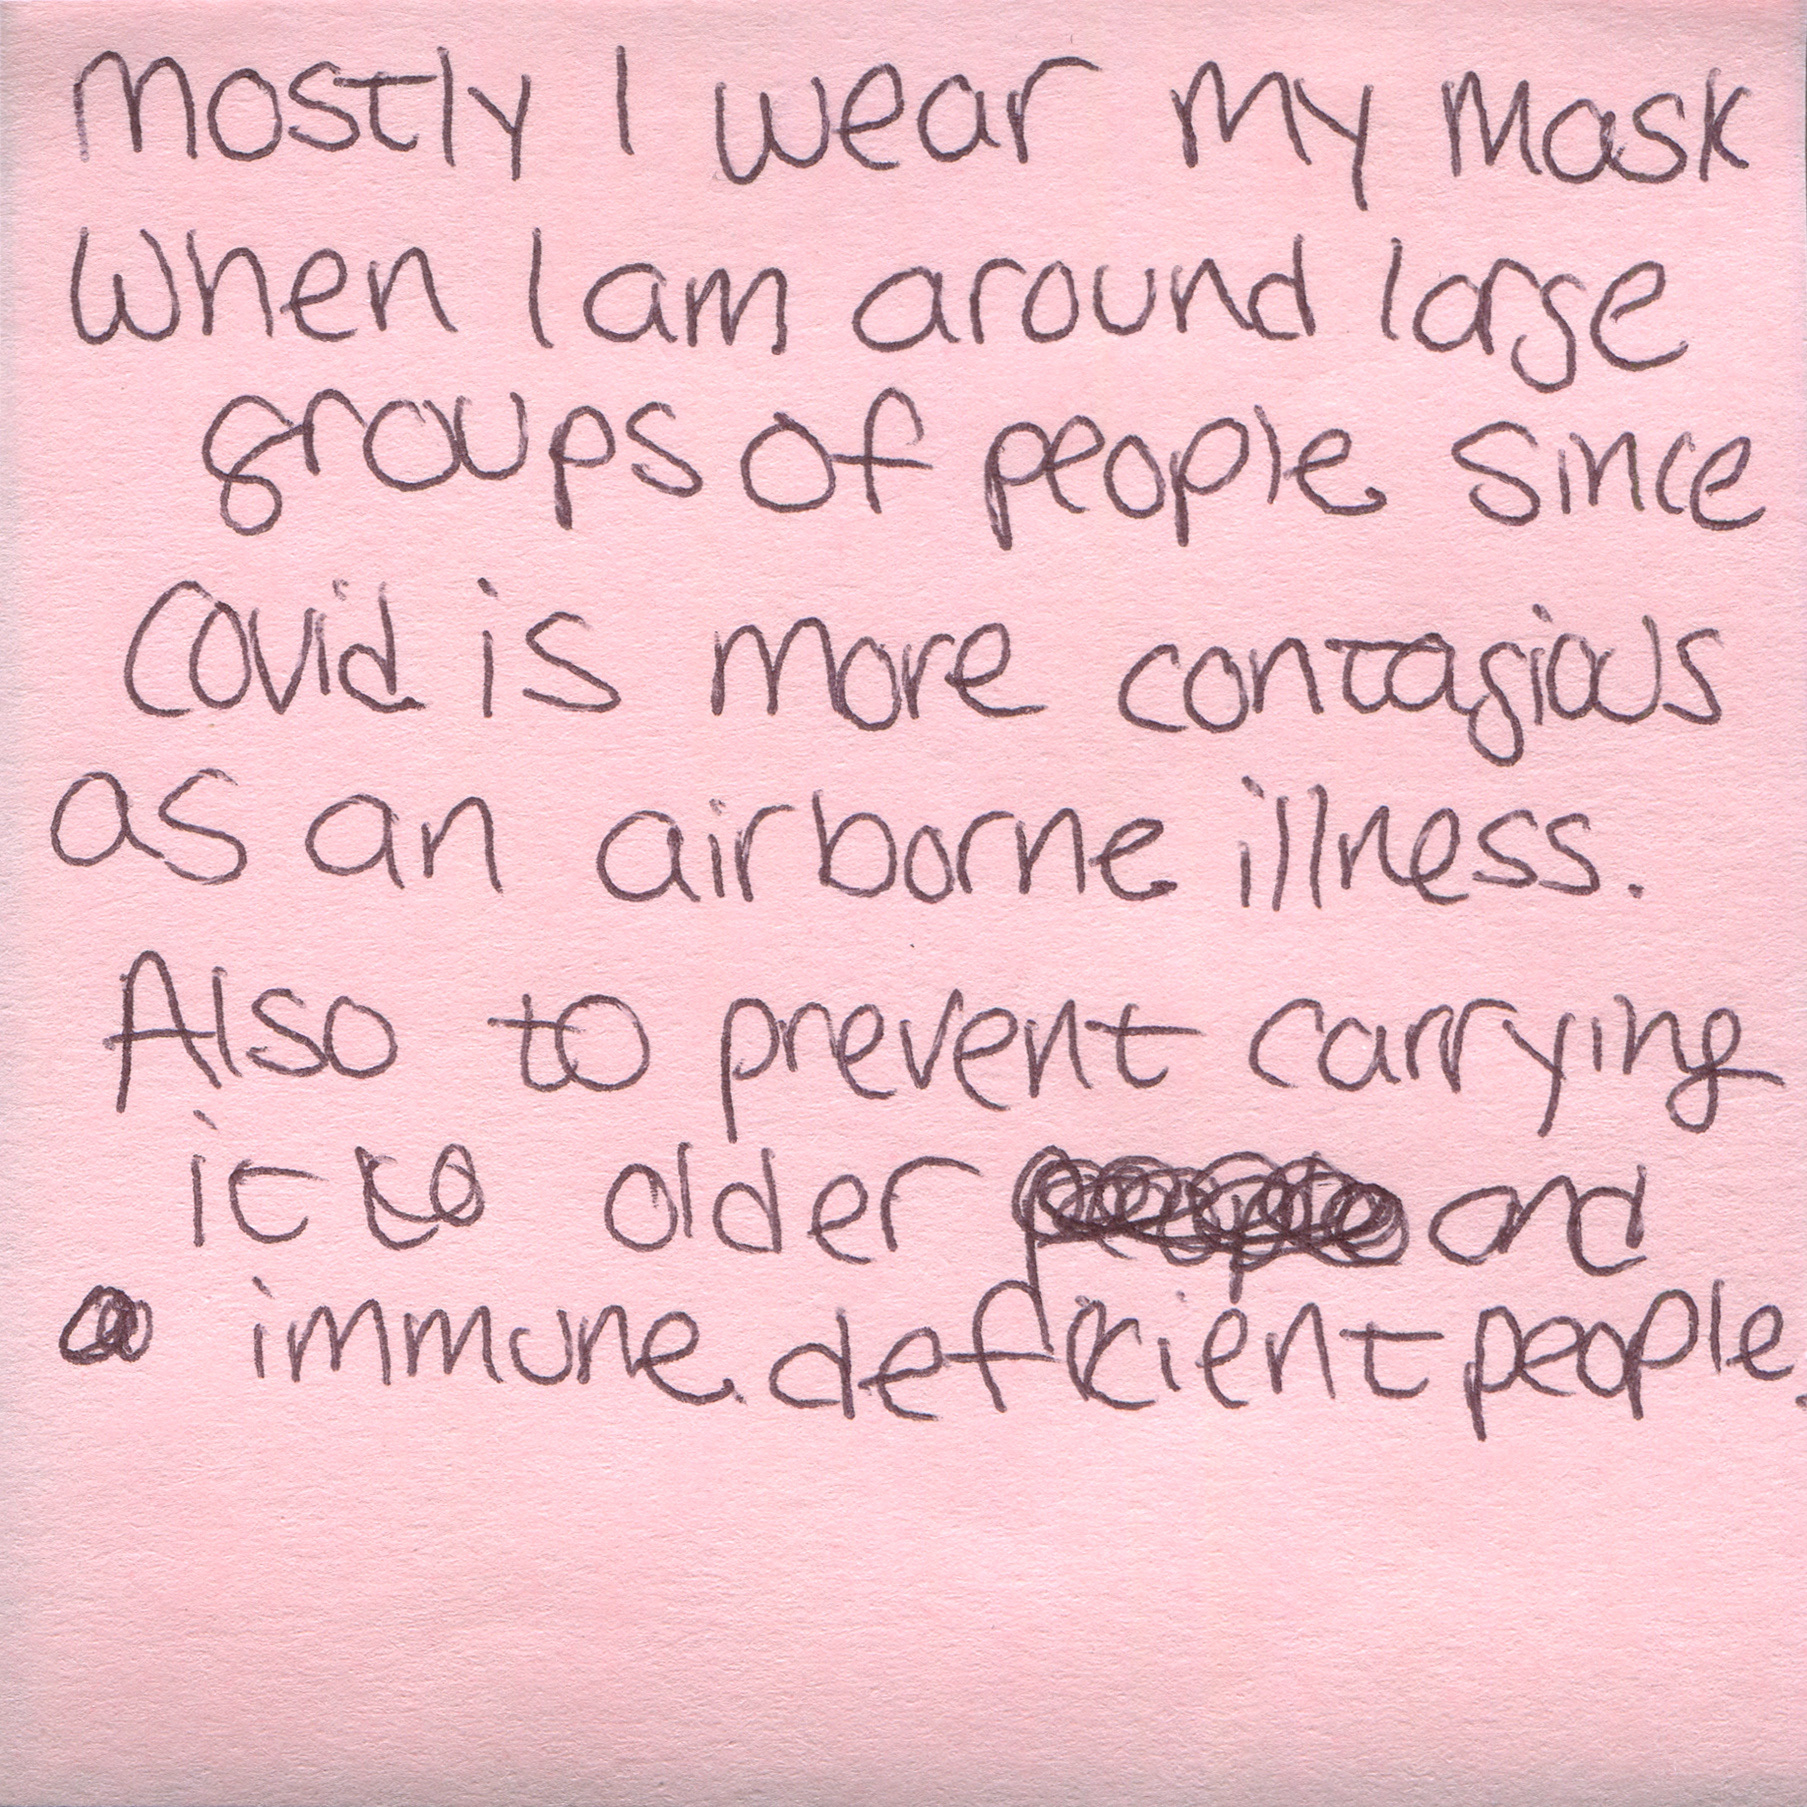 Mostly I wear my mask
When I am around large
groups of people since
Covid is more contagious
as an airborne illness.
Also to prevent carrying
it to older and
immune deficient people.